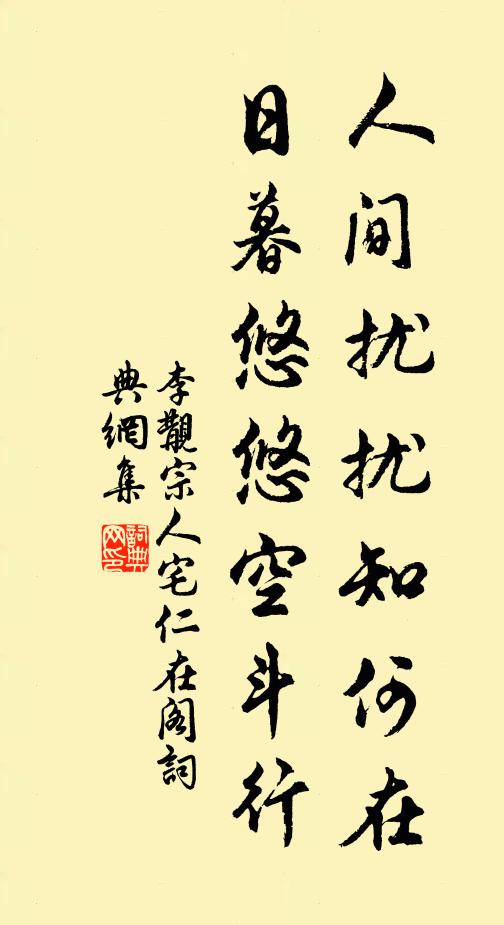 人间扰扰知何在
日暮悠悠空斗行
李觀宗人宅仁在阁詞
典網集
詞典
网印